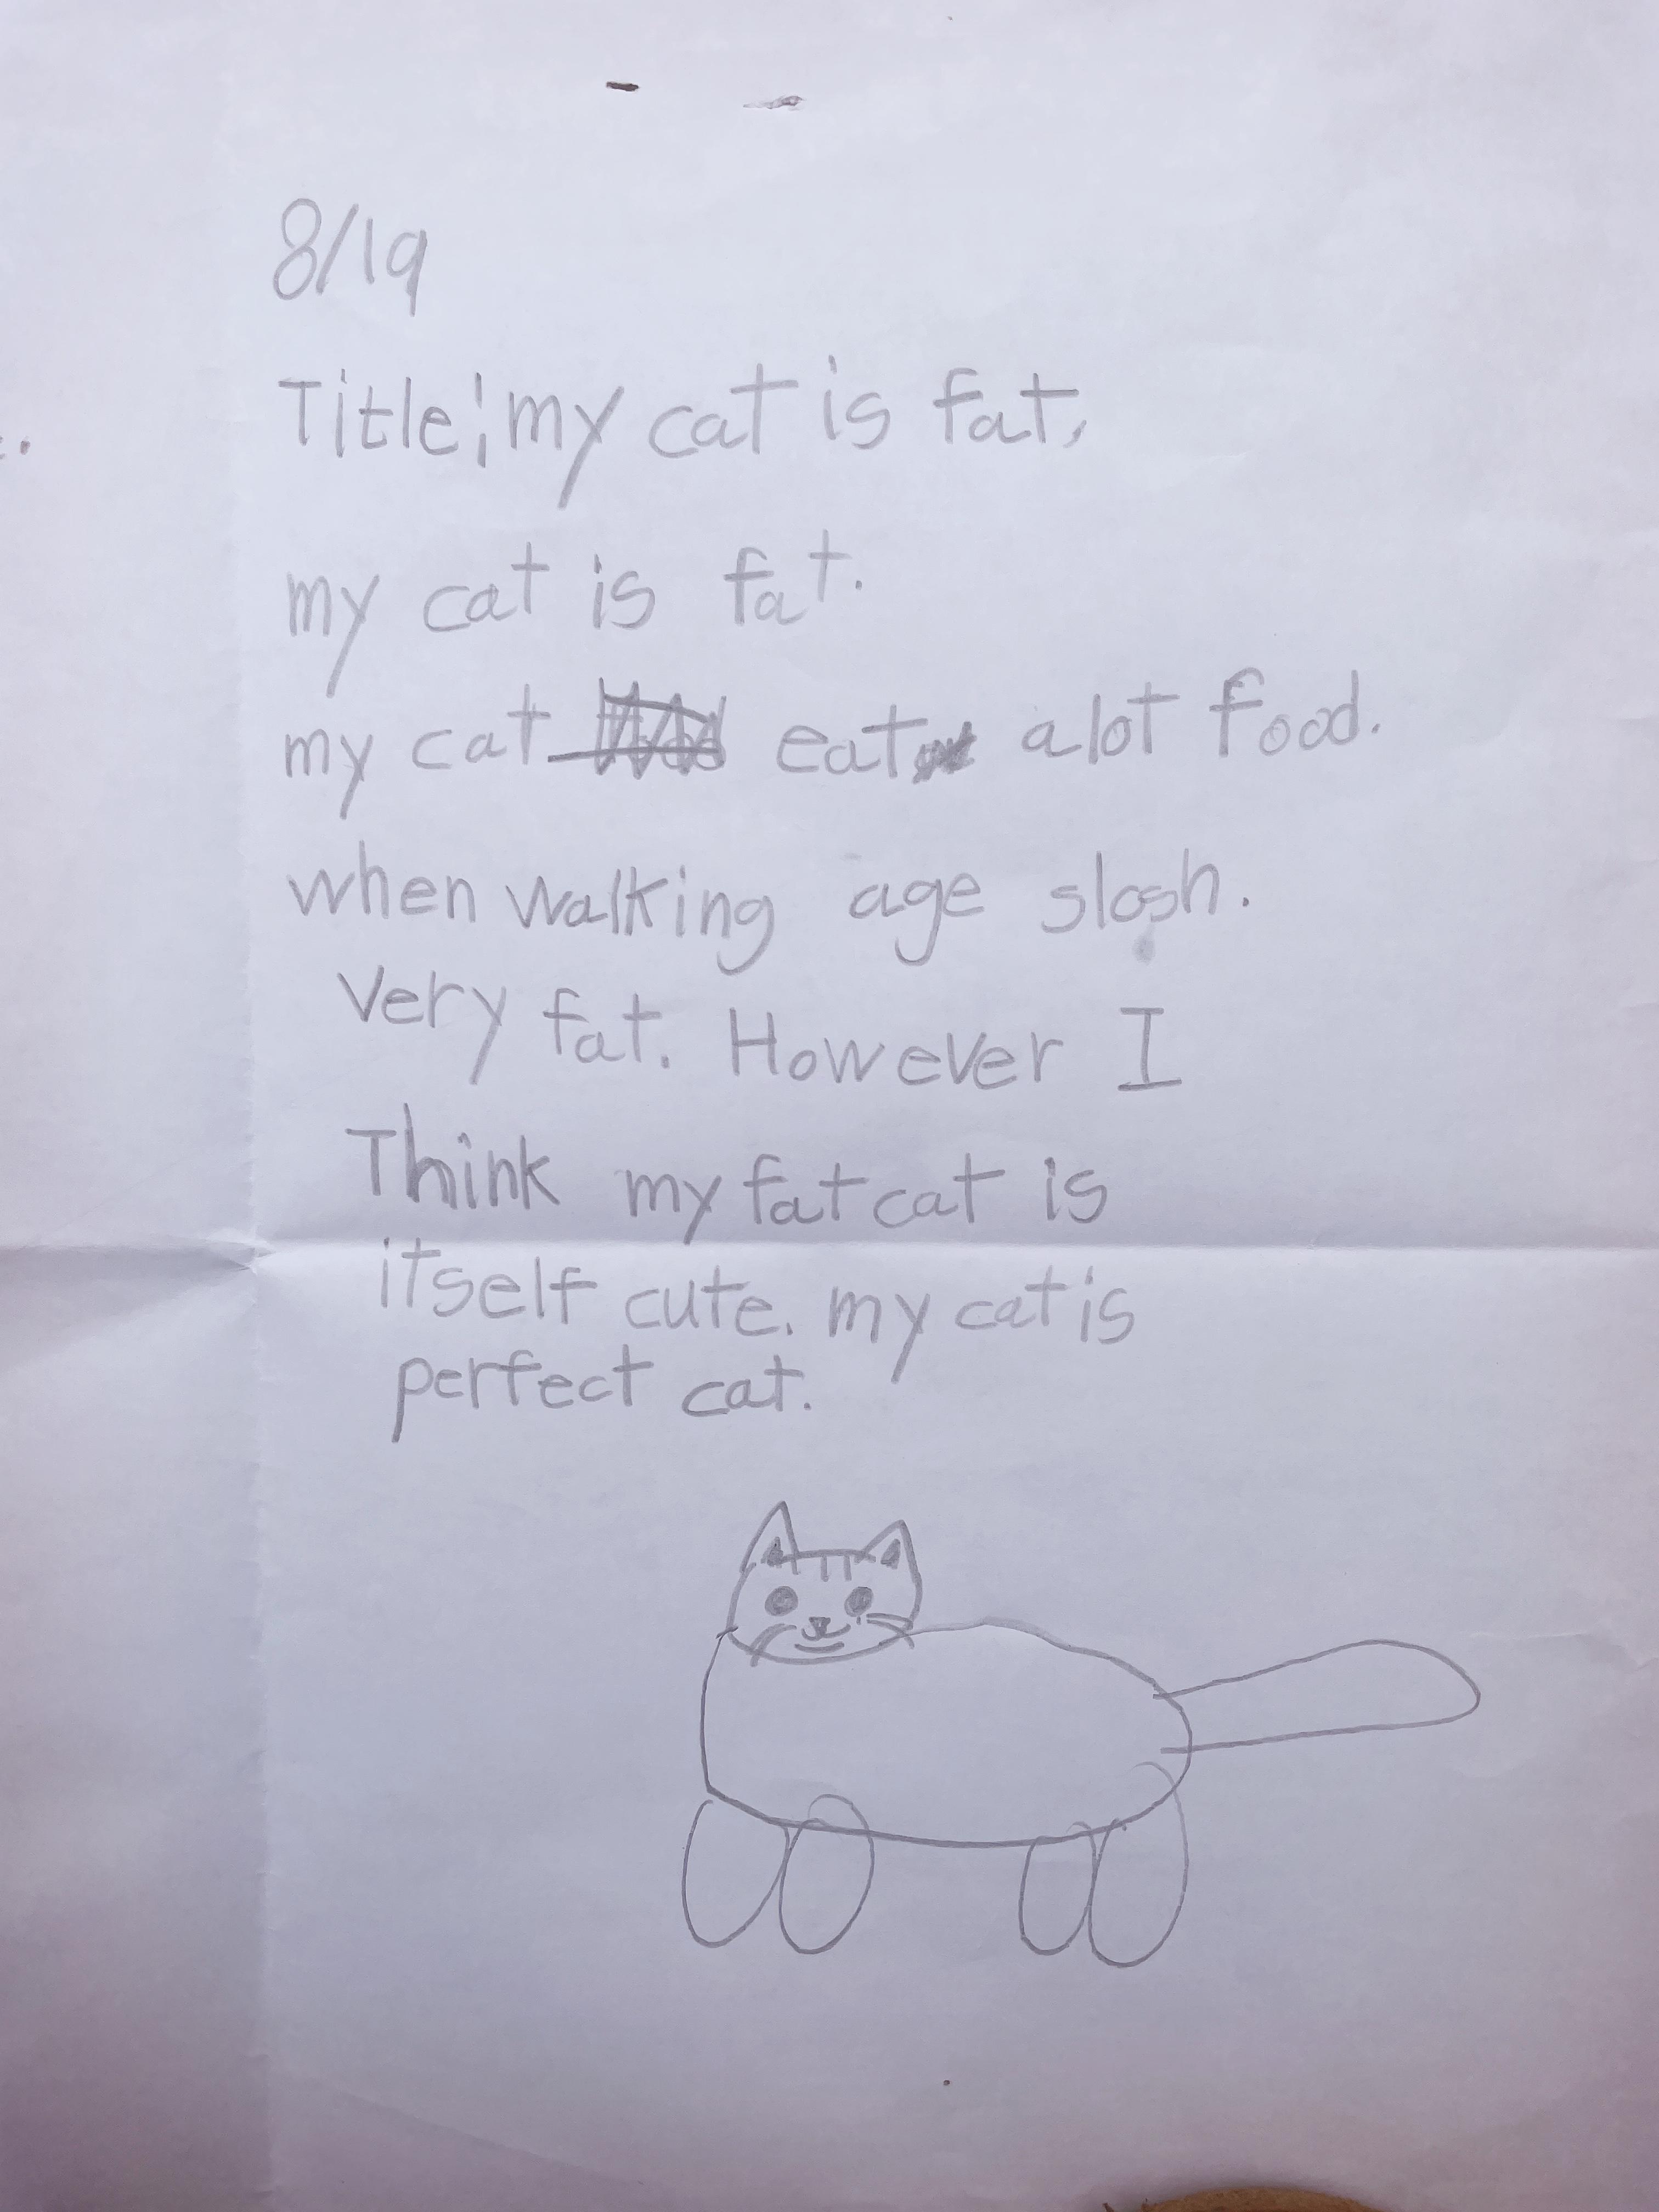 8/19
Title: my cat is fat,
my cat is fat.
my cat eat alot food.
when walking age slosh.
Very fat. However I
Think my fat cat is
itself cute. my cat is
perfect cat.